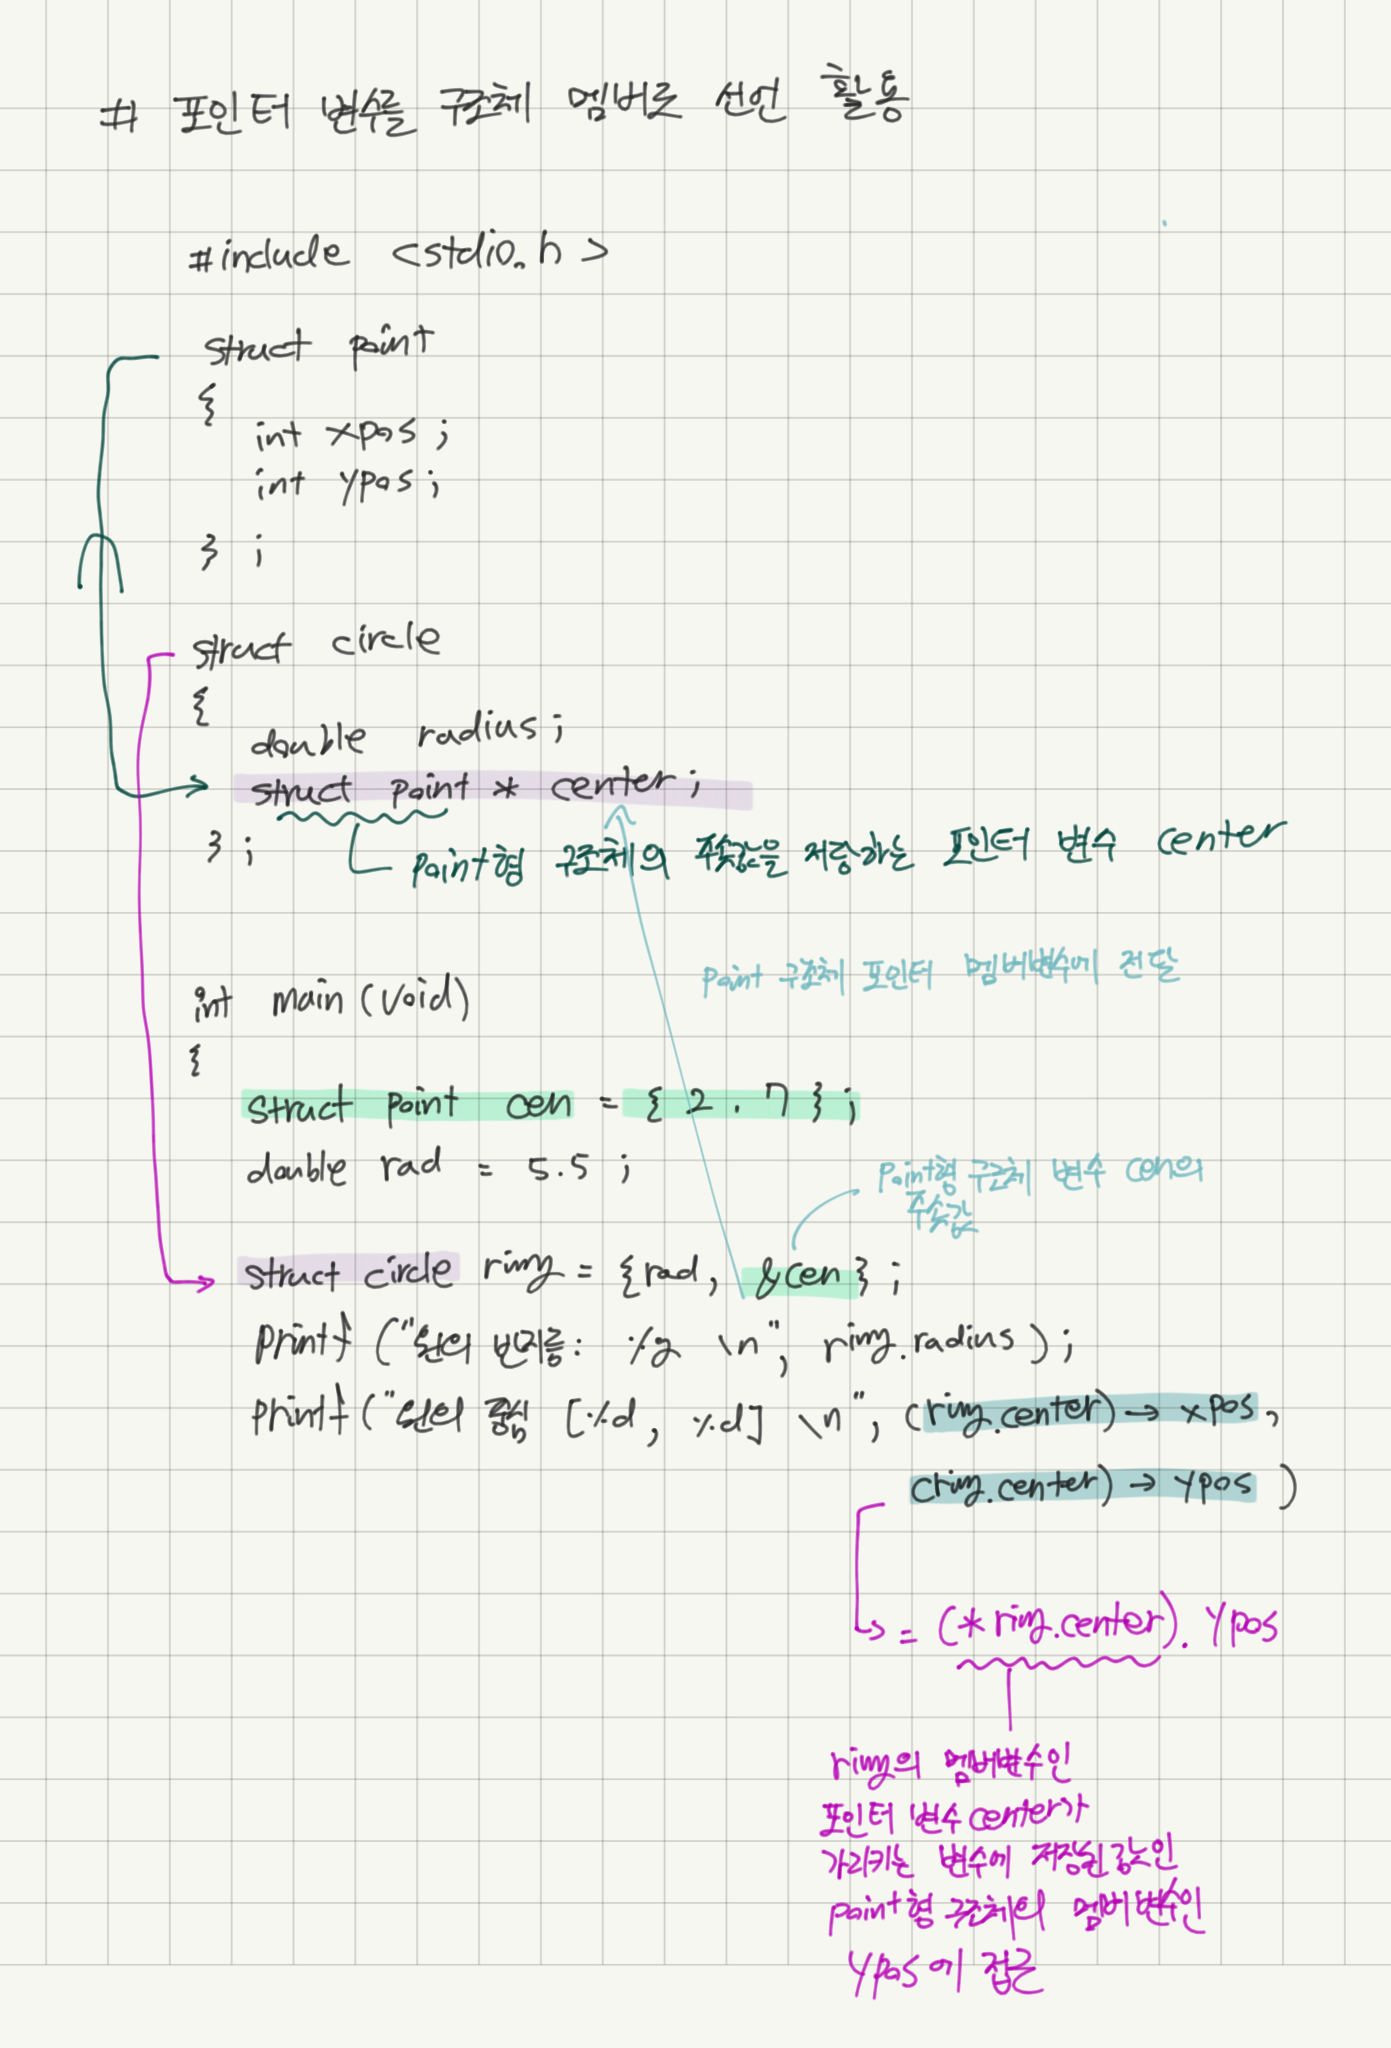 # 포인터 변수를 구조체 멤버로 선언 활용
#include <stdio.h>
struct point
{
int xpos;
int ypos;
};
struct circle
{
double radius;
struct point * center;
};
point형 구조체의 주솟값을 저장하는 포인터 변수 center
point 구조체 포인터 멤버변수에 전달
int main (void)
{
struct point cen = { 2 . 7 };
double rad = 5.5 ;
point형 구조체 변수 cen의
주솟값
struct circle ring = {rad, &cen};
printf ("원의 반지름: %g \n", ring.radius);
printf ("원의 중심 [%d, %d] \n", (ring.center)→xpos,
(ring.center)→ypos )
= (*ring.center). ypos
ring의 멤버변수인
포인터 변수 center가
가리키는 변수에 저장된 값인
point형 구조체의 멤버변수인
ypos에 접근